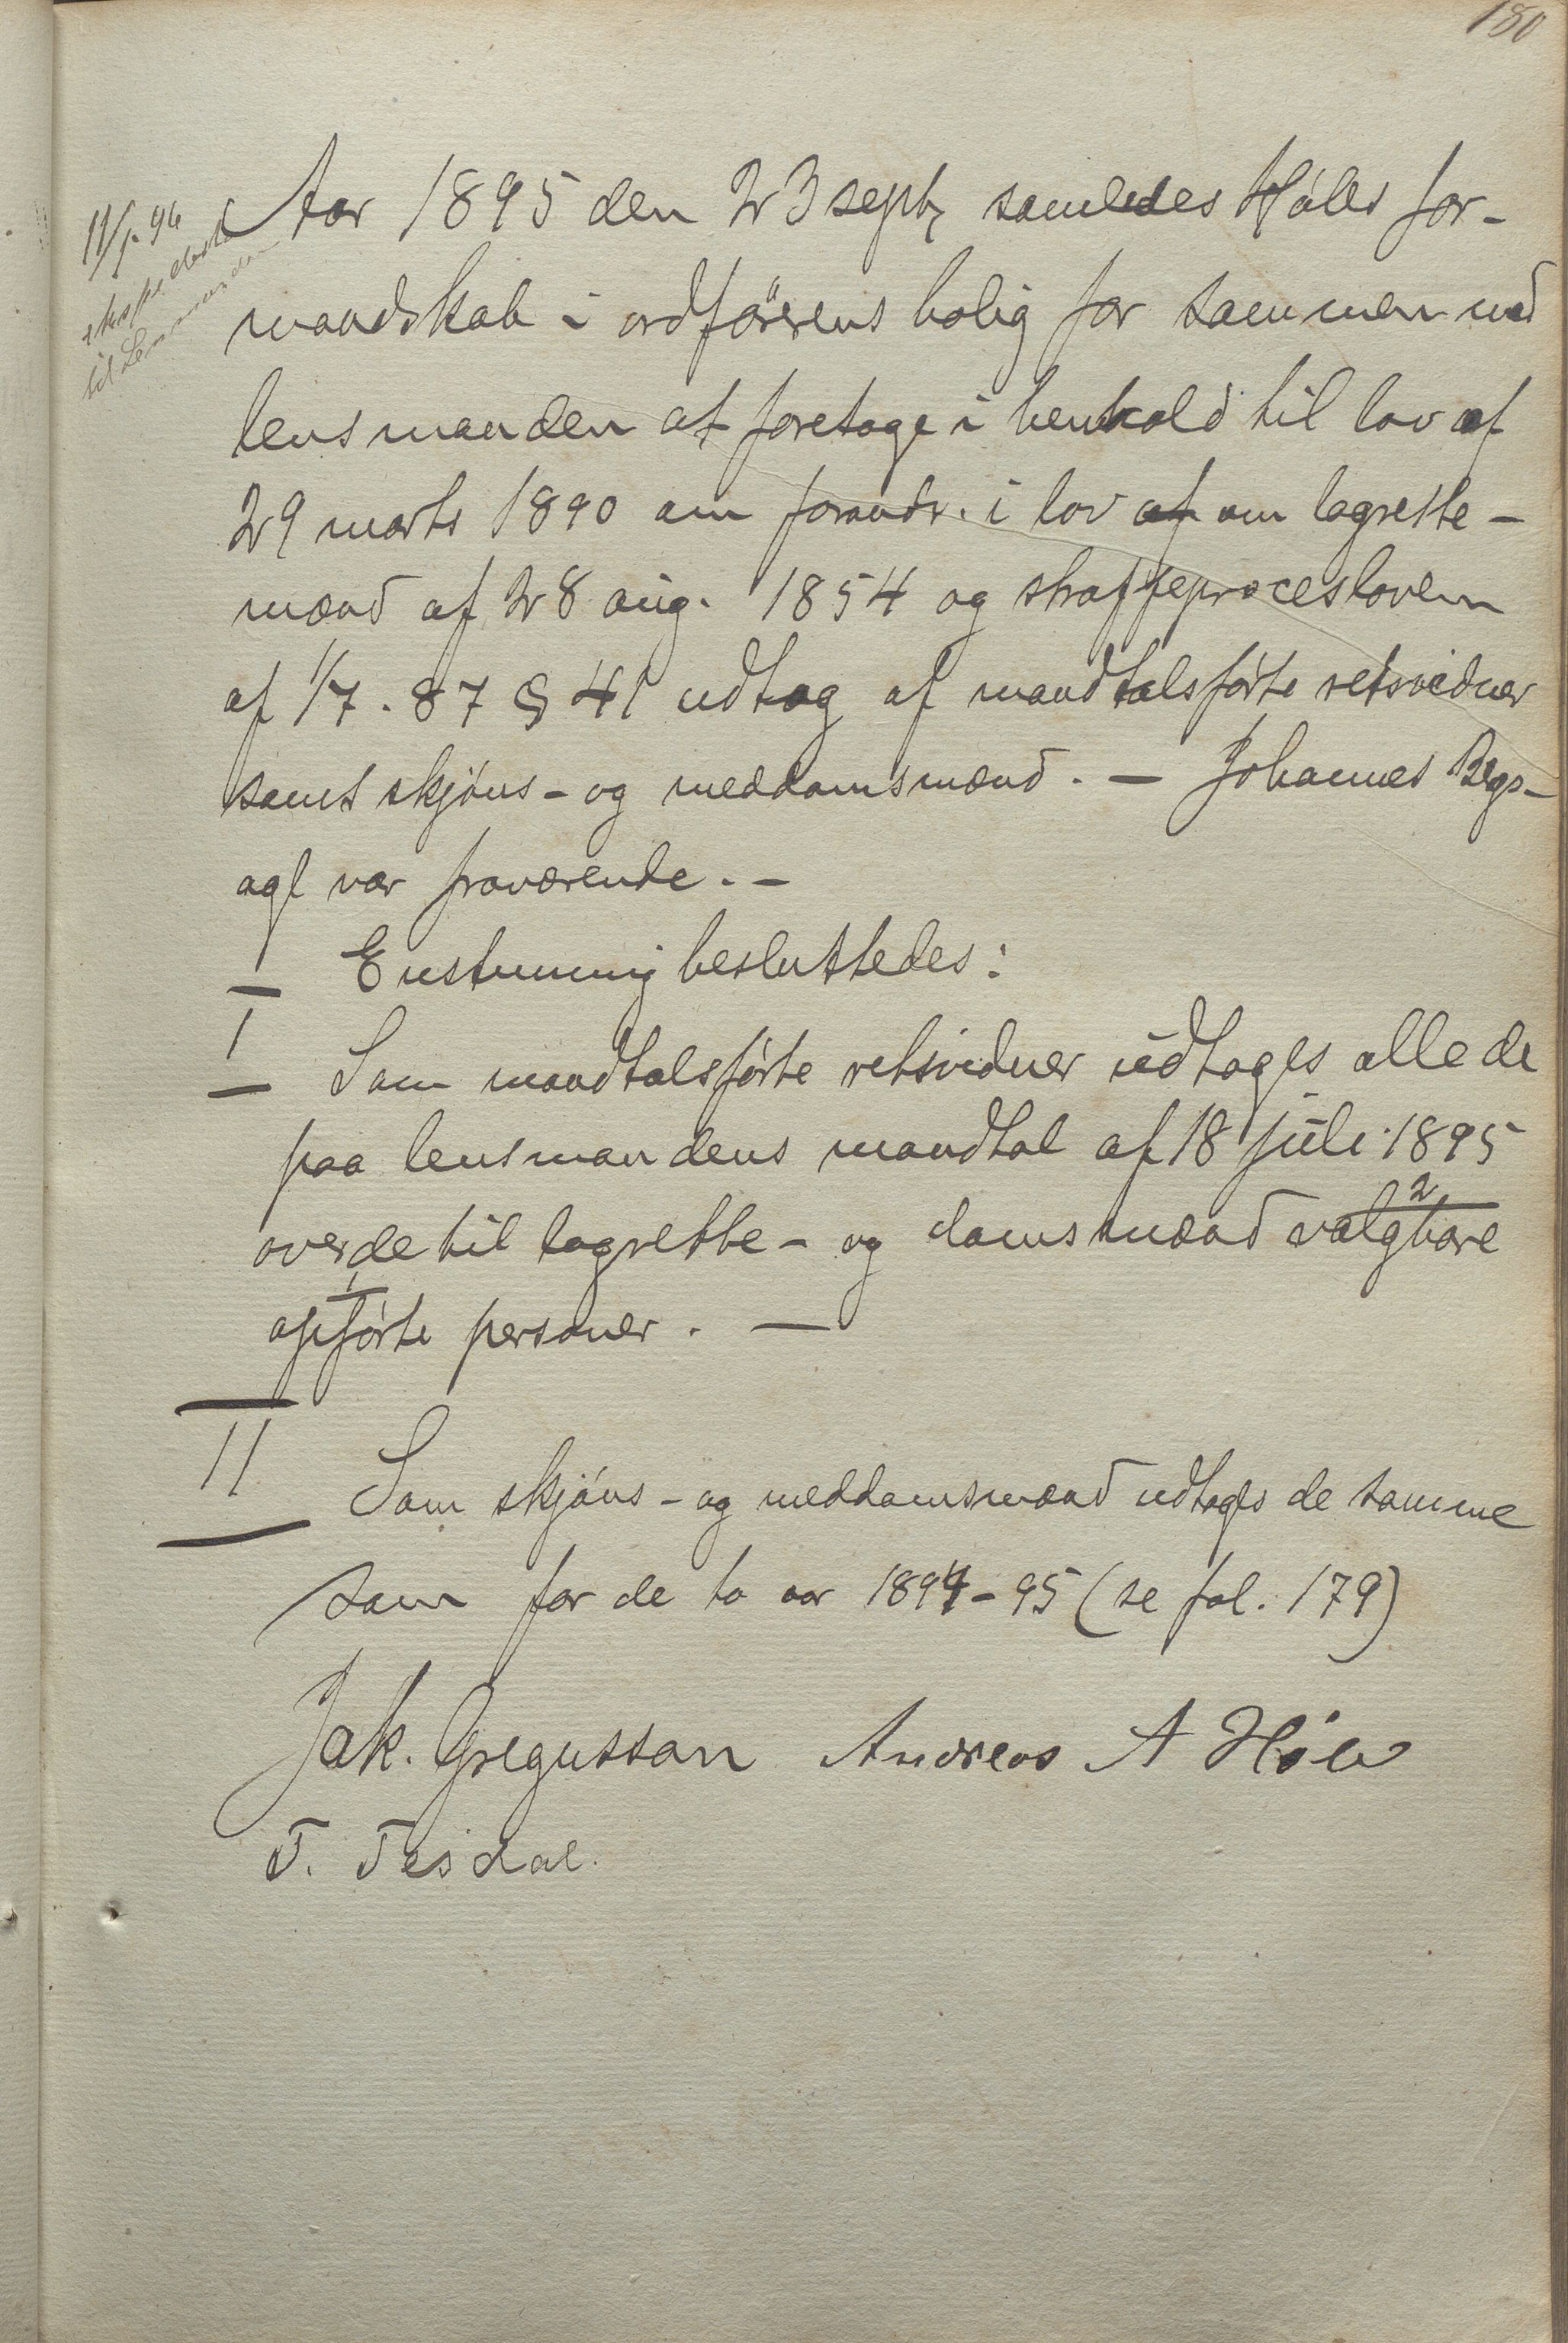 180
11/1. 96
ekspederet
til Lensmanden
Aar 1895 den 23 septb. samledes Høles for-
mandskab i ordførerens bolig for sammen med
lensmanden at foretage i henhold til lov af
29 marts 1890 om forandr. i lov af om lagrette-
mænd af 28 aug. 1854 og straffeproceslovens
af 1/7. 87 § 41 udtog af mandtalsførte retsvidner
samt skjøns- og meddomsmænd. — Johannes
var fraværende. —
Enstemmig besluttedes:
I
Som mandtalsførte retsvidner udtages alle de
paa lensmandens mandtal af 18 juli 1895
over de til lagrette- og domsmænd valgbare 2
opførte personer. —
II
Som skjøns- og meddomsmænd udtages de samme
som for de to aar 1894-95 (se fol. 179)
Jak. Gregussøn Andreas A Høle
T. Tesdal.